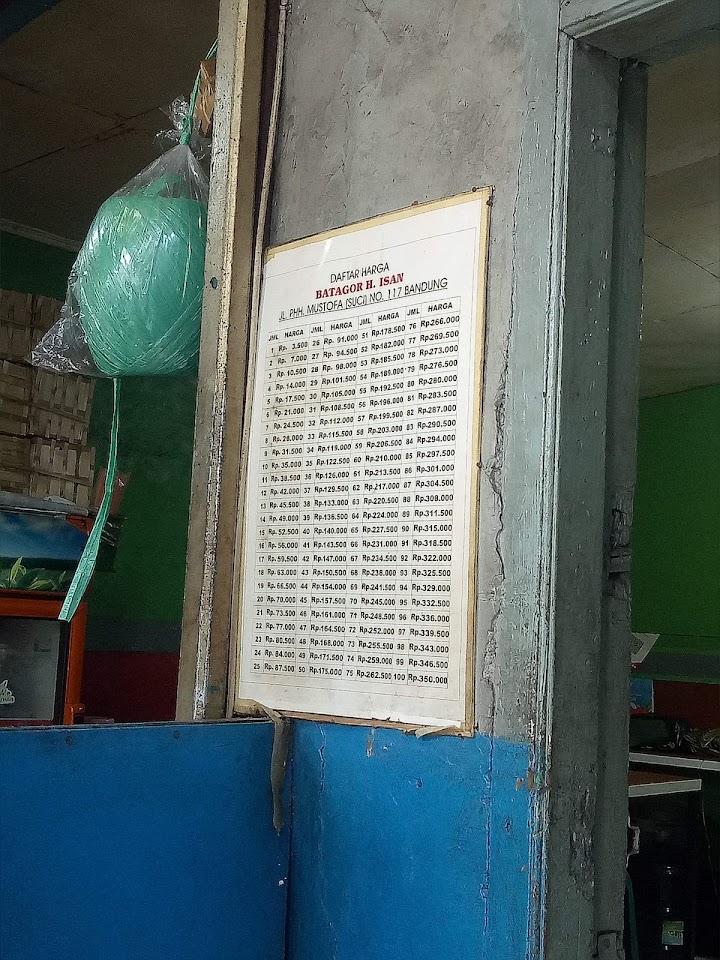 DAFTAR HARGA
BATAGOR H. ISAN
JL. PHH. MUSTOFA (SUCI) NO. 117 BANDUNG
JML HARGA JML HARGA JML HARGA JML HARGA
1 Rp. 3.500 26 Rp. 91.000 51 Rp.178.500 76 Rp.266.000
2 Rp. 7.000 27 Rp. 94.500 52 Rp.182.000 77 Rp.269.500
3 Rp. 10.500 28 Rp. 98.000 53 Rp.185.500 78 Rp.273.000
4 Rp. 14.000 29 Rp.101.500 54 Rp.189.000 79 Rp.276.500
5 Rp. 17.500 30 Rp.105.000 55 Rp.192.500 80 Rp.280.000
6 Rp. 21.000 31 Rp.108.500 56 Rp.196.000 81 Rp.283.500
7 Rp. 24.500 32 Rp.112.000 57 Rp.199.500 82 Rp.287.000
8 Rp. 28.000 33 Rp.115.500 58 Rp.203.000 83 Rp.290.500
9 Rp. 31.500 34 Rp.119.000 59 Rp.206.500 84 Rp.294.000
10 Rp. 35.000 35 Rp.122.500 60 Rp.210.000 85 Rp.297.500
11 Rp. 38.500 36 Rp.126.000 61 Rp.213.500 86 Rp.301.000
12 Rp. 42.000 37 Rp.129.500 62 Rp.217.000 87 Rp.304.500
13 Rp. 45.500 38 Rp.133.000 63 Rp.220.500 88 Rp.308.000
14 Rp. 49.000 39 Rp.136.500 64 Rp.224.000 89 Rp.311.500
15 Rp. 52.500 40 Rp.140.000 65 Rp.227.500 90 Rp.315.000
16 Rp. 56.000 41 Rp.143.500 66 Rp.231.000 91 Rp.318.500
17 Rp. 59.500 42 Rp.147.000 67 Rp.234.500 92 Rp.322.000
18 Rp. 63.000 43 Rp.150.500 68 Rp.238.000 93 Rp.325.500
19 Rp. 66.500 44 Rp.154.000 69 Rp.241.500 94 Rp.329.000
20 Rp. 70.000 45 Rp.157.500 70 Rp.245.000 95 Rp.332.500
21 Rp. 73.500 46 Rp.161.000 71 Rp.248.500 96 Rp.336.000
22 Rp. 77.000 47 Rp.164.500 72 Rp.252.000 97 Rp.339.500
23 Rp. 80.500 48 Rp.168.000 73 Rp.255.500 98 Rp.343.000
24 Rp. 84.000 49 Rp.171.500 74 Rp.259.000 99 Rp.346.500
25 Rp. 87.500 50 Rp.175.000 75 Rp.262.500 100 Rp.350.000